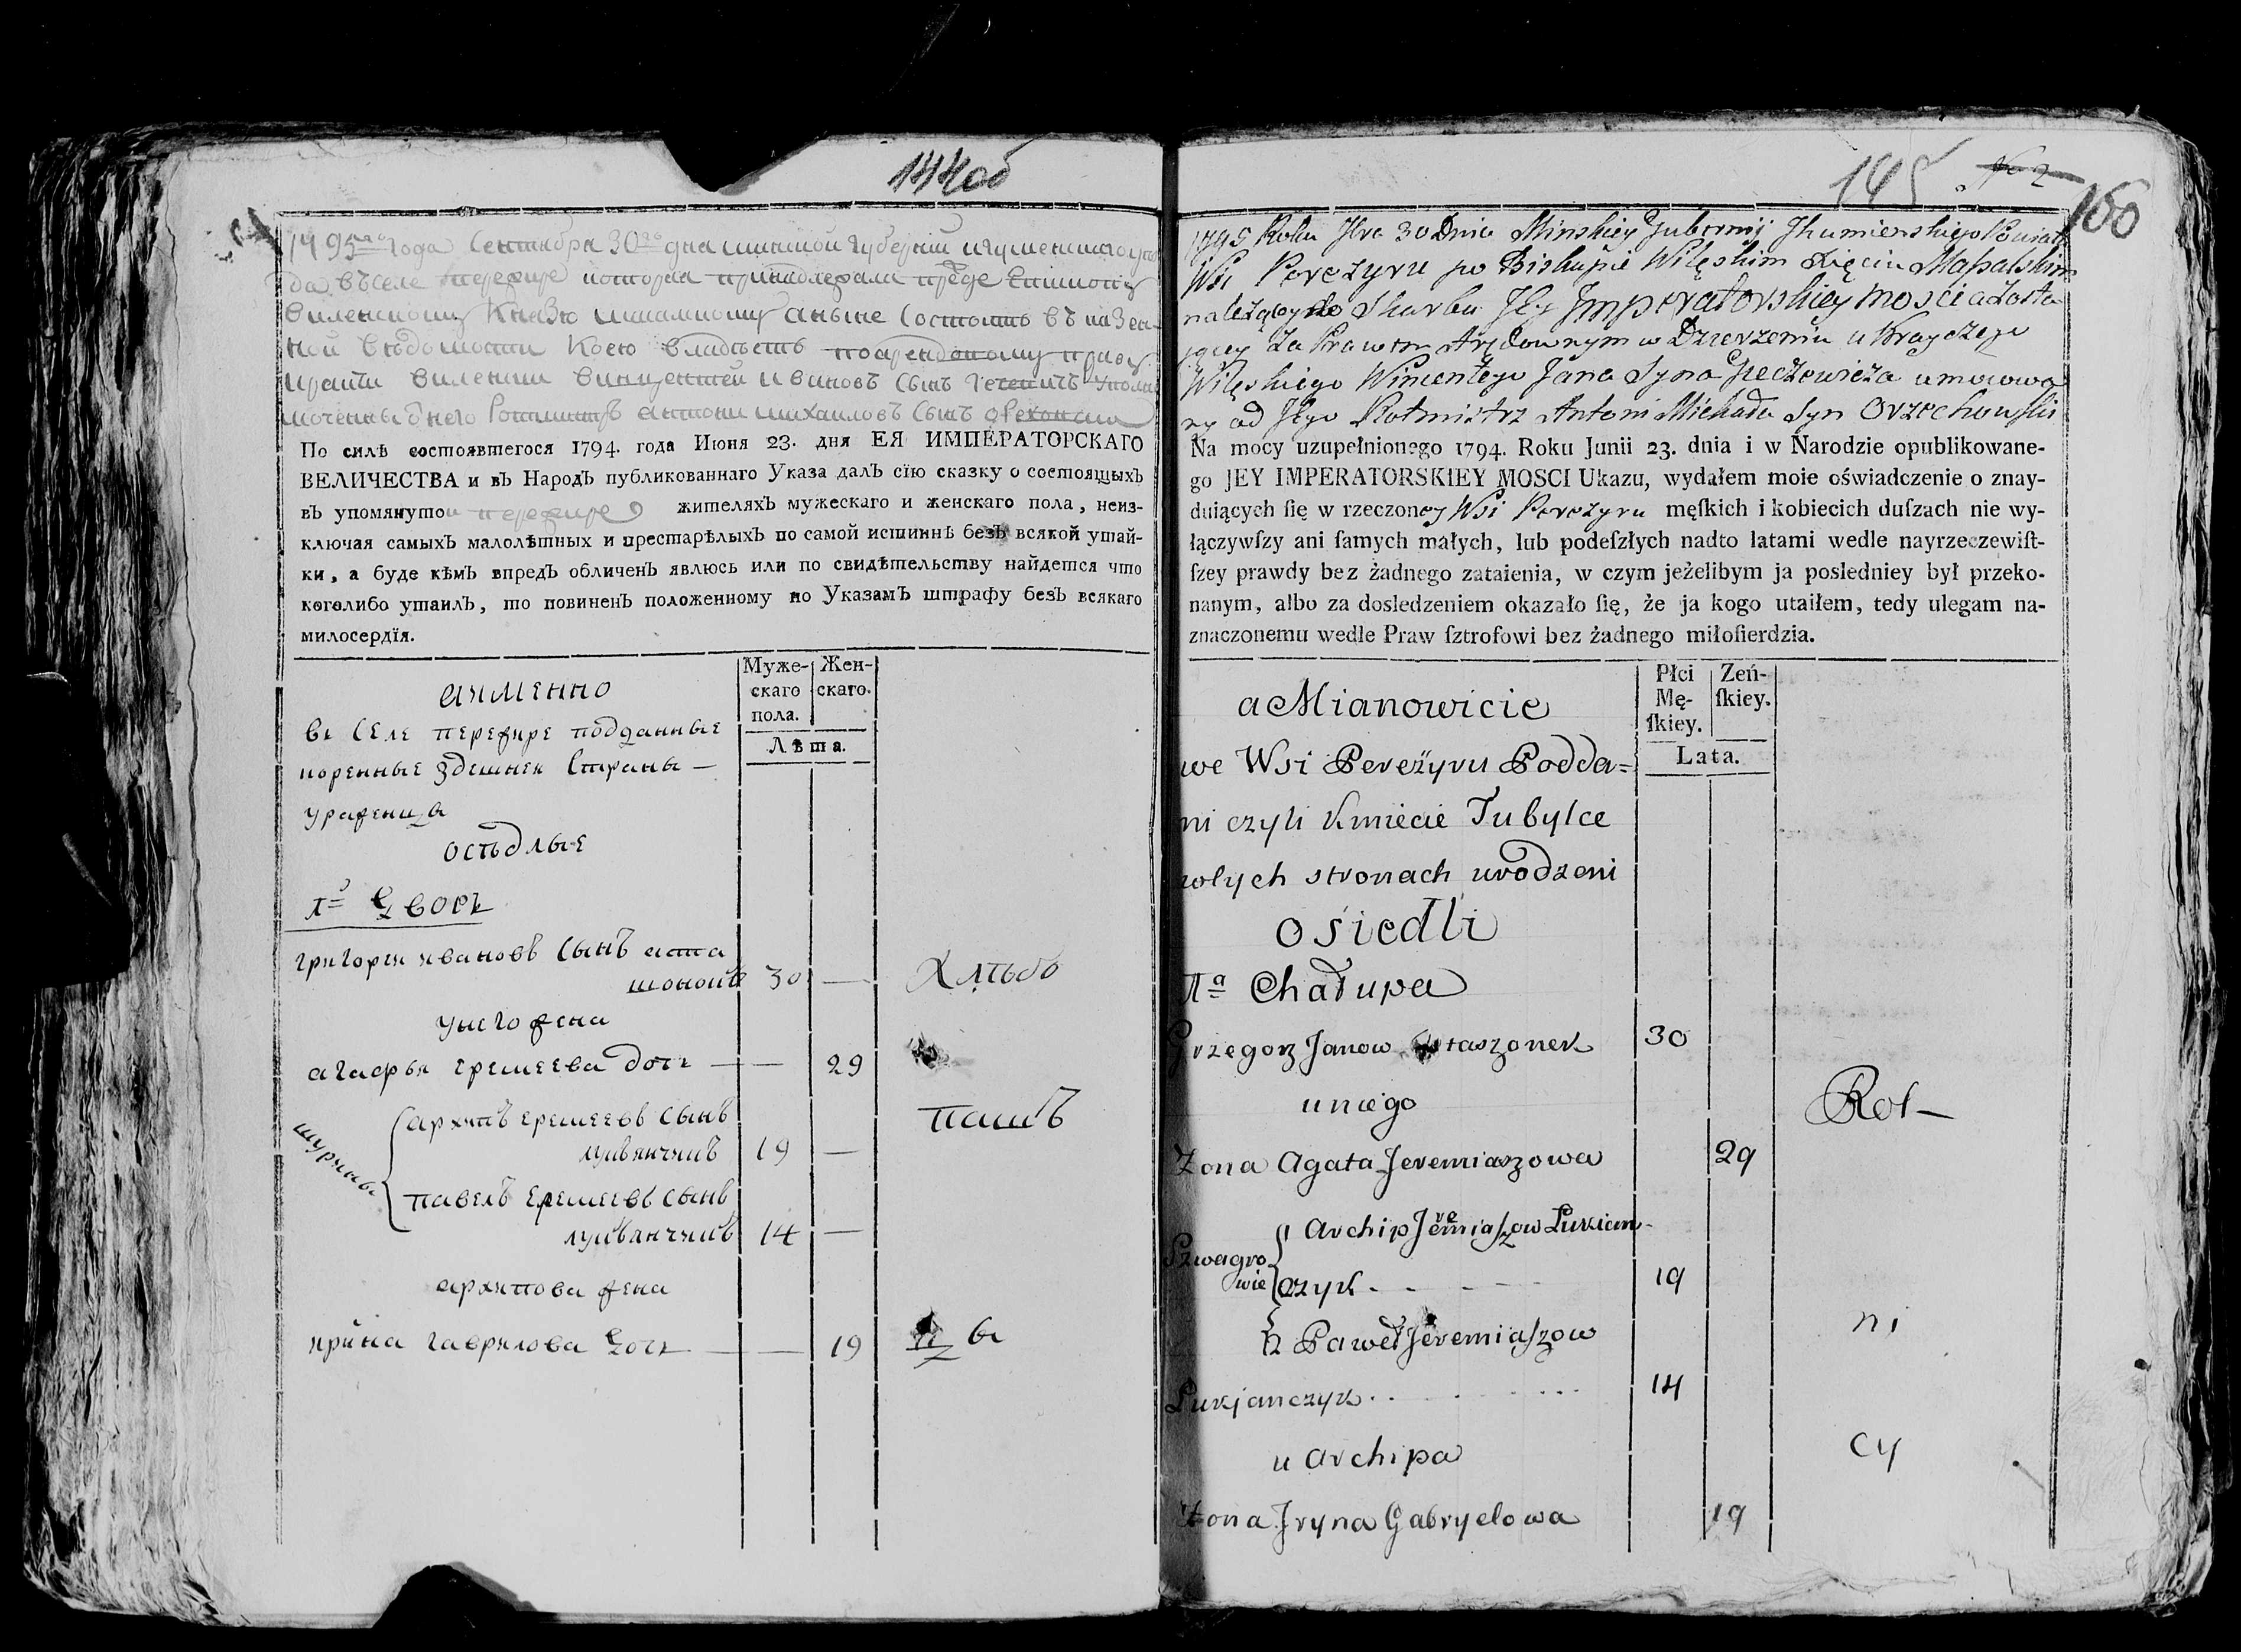 144об
1795го года Сентября 30го дня минской губернии игуменскаго уез
да въ селе пережире которая принадлежала прежде Епископу
виленскому Князю а ныне Состоитъ въ казен
ной ведомости Коею владѣетъ по арендовому праву
виленски викентей ивановъ сынъ уполно
моченны Ротмистръ антони михаиловъ сынъ
По силѣ состоявшегося 1794. года Июня 23. дня ЕЯ ИМПЕРАТОРСКАГО
ВЕЛИЧЕСТВА и въ Народъ публикованнаго Указа далъ сїю сказку о состоящыхъ
въ упомянутой пережире жителяхъ мужескаго и женскаго пола, неиз-
ключая самыхъ малолѣтных и престарѣлыхъ по самой истиннѣ безъ всякой утай-
ки, а буде кѣмъ впредъ обличенъ явлюсь или по свидѣтельству найдется что
коголибо утаилъ, то повиненъ положенному по Указамъ штрафу безъ всякаго
милосердїя.
Муже-скаго пола. Жен-скаго.
Лѣта.
а именно
въ селе пережире подданные
коренные здешнеи Страны —
ураженцы
осѣдлые
1й дворъ
григореи ивановъ сынъ аста
шонокъ 30 — Хлѣбо
у него жена
агафья еремеева дочь — — 29
шурины
архипъ еремеевъ сынъ
лукянчикъ 19 — пашъ
павелъ еремеевъ сынъ
лукьянчикъ 14 —
архипова жена
ирина гаврилова дочь — — 19 цы
145. No 2
166
1795 Roku 7bra 30 Dnia Minskiey Gubernij Ihumienskiego Powiatu
Wsi Perezyru po Biskupie Wileskim Xięciu Massalskim
należącey do Skarbu Jey Imperatorskiey mosci a Zosta
jącey Za Prawem Arędownym w Dzierzeniu u Krayczego
Wileskiego Wincentego Jana Syna Gieczewicza umocowa
ny od Jego Rotmistrz Antoni Michała Syn Orzechowski
Na mocy uzupełnionego 1794. Roku Junii 23. dnia i w Narodzie opublikowane-
go JEY IMPERATORSKIEY MOSCI Ukazu, wydałem moie oświadczenie o znay-
duiących ſię w rzeczoney Wsi Perezyru męſkich i kobiecich duſzach nie wy-
łączywſzy ani ſamych małych, lub podeſzłych nadto latami wedle nayrzeczewiſt-
ſzey prawdy bez żadnego zataienia, w czym jeżelibym ja posledniey był przeko-
nanym, albo za dosledzeniem okazało ſię, że ja kogo utaiłem, tedy ulegam na-
znaczonemu wedle Praw ſztrofowi bez żadnego miłoſierdzia.
Płci Mę-ſkiey. Zeń-ſkiey.
Lata.
a Mianowicie
we Wsi Pereżyru Podda=
ni czyli Kmiecie Tubylce
wtych stronach urodzeni
osiedli
1a Chałupa
Grzegorz Janow Astaszonek 30
u niego Rol—
Zona Agata Jeremiaszowa 29
Szwagro wie
1 Archip Jeremiaszow Lukian-
czyk 19
2 Paweł Jeremiaszow ni
Lukjanczyk 14
u Archipa cy
Zona Iryna Gabryelowa 19